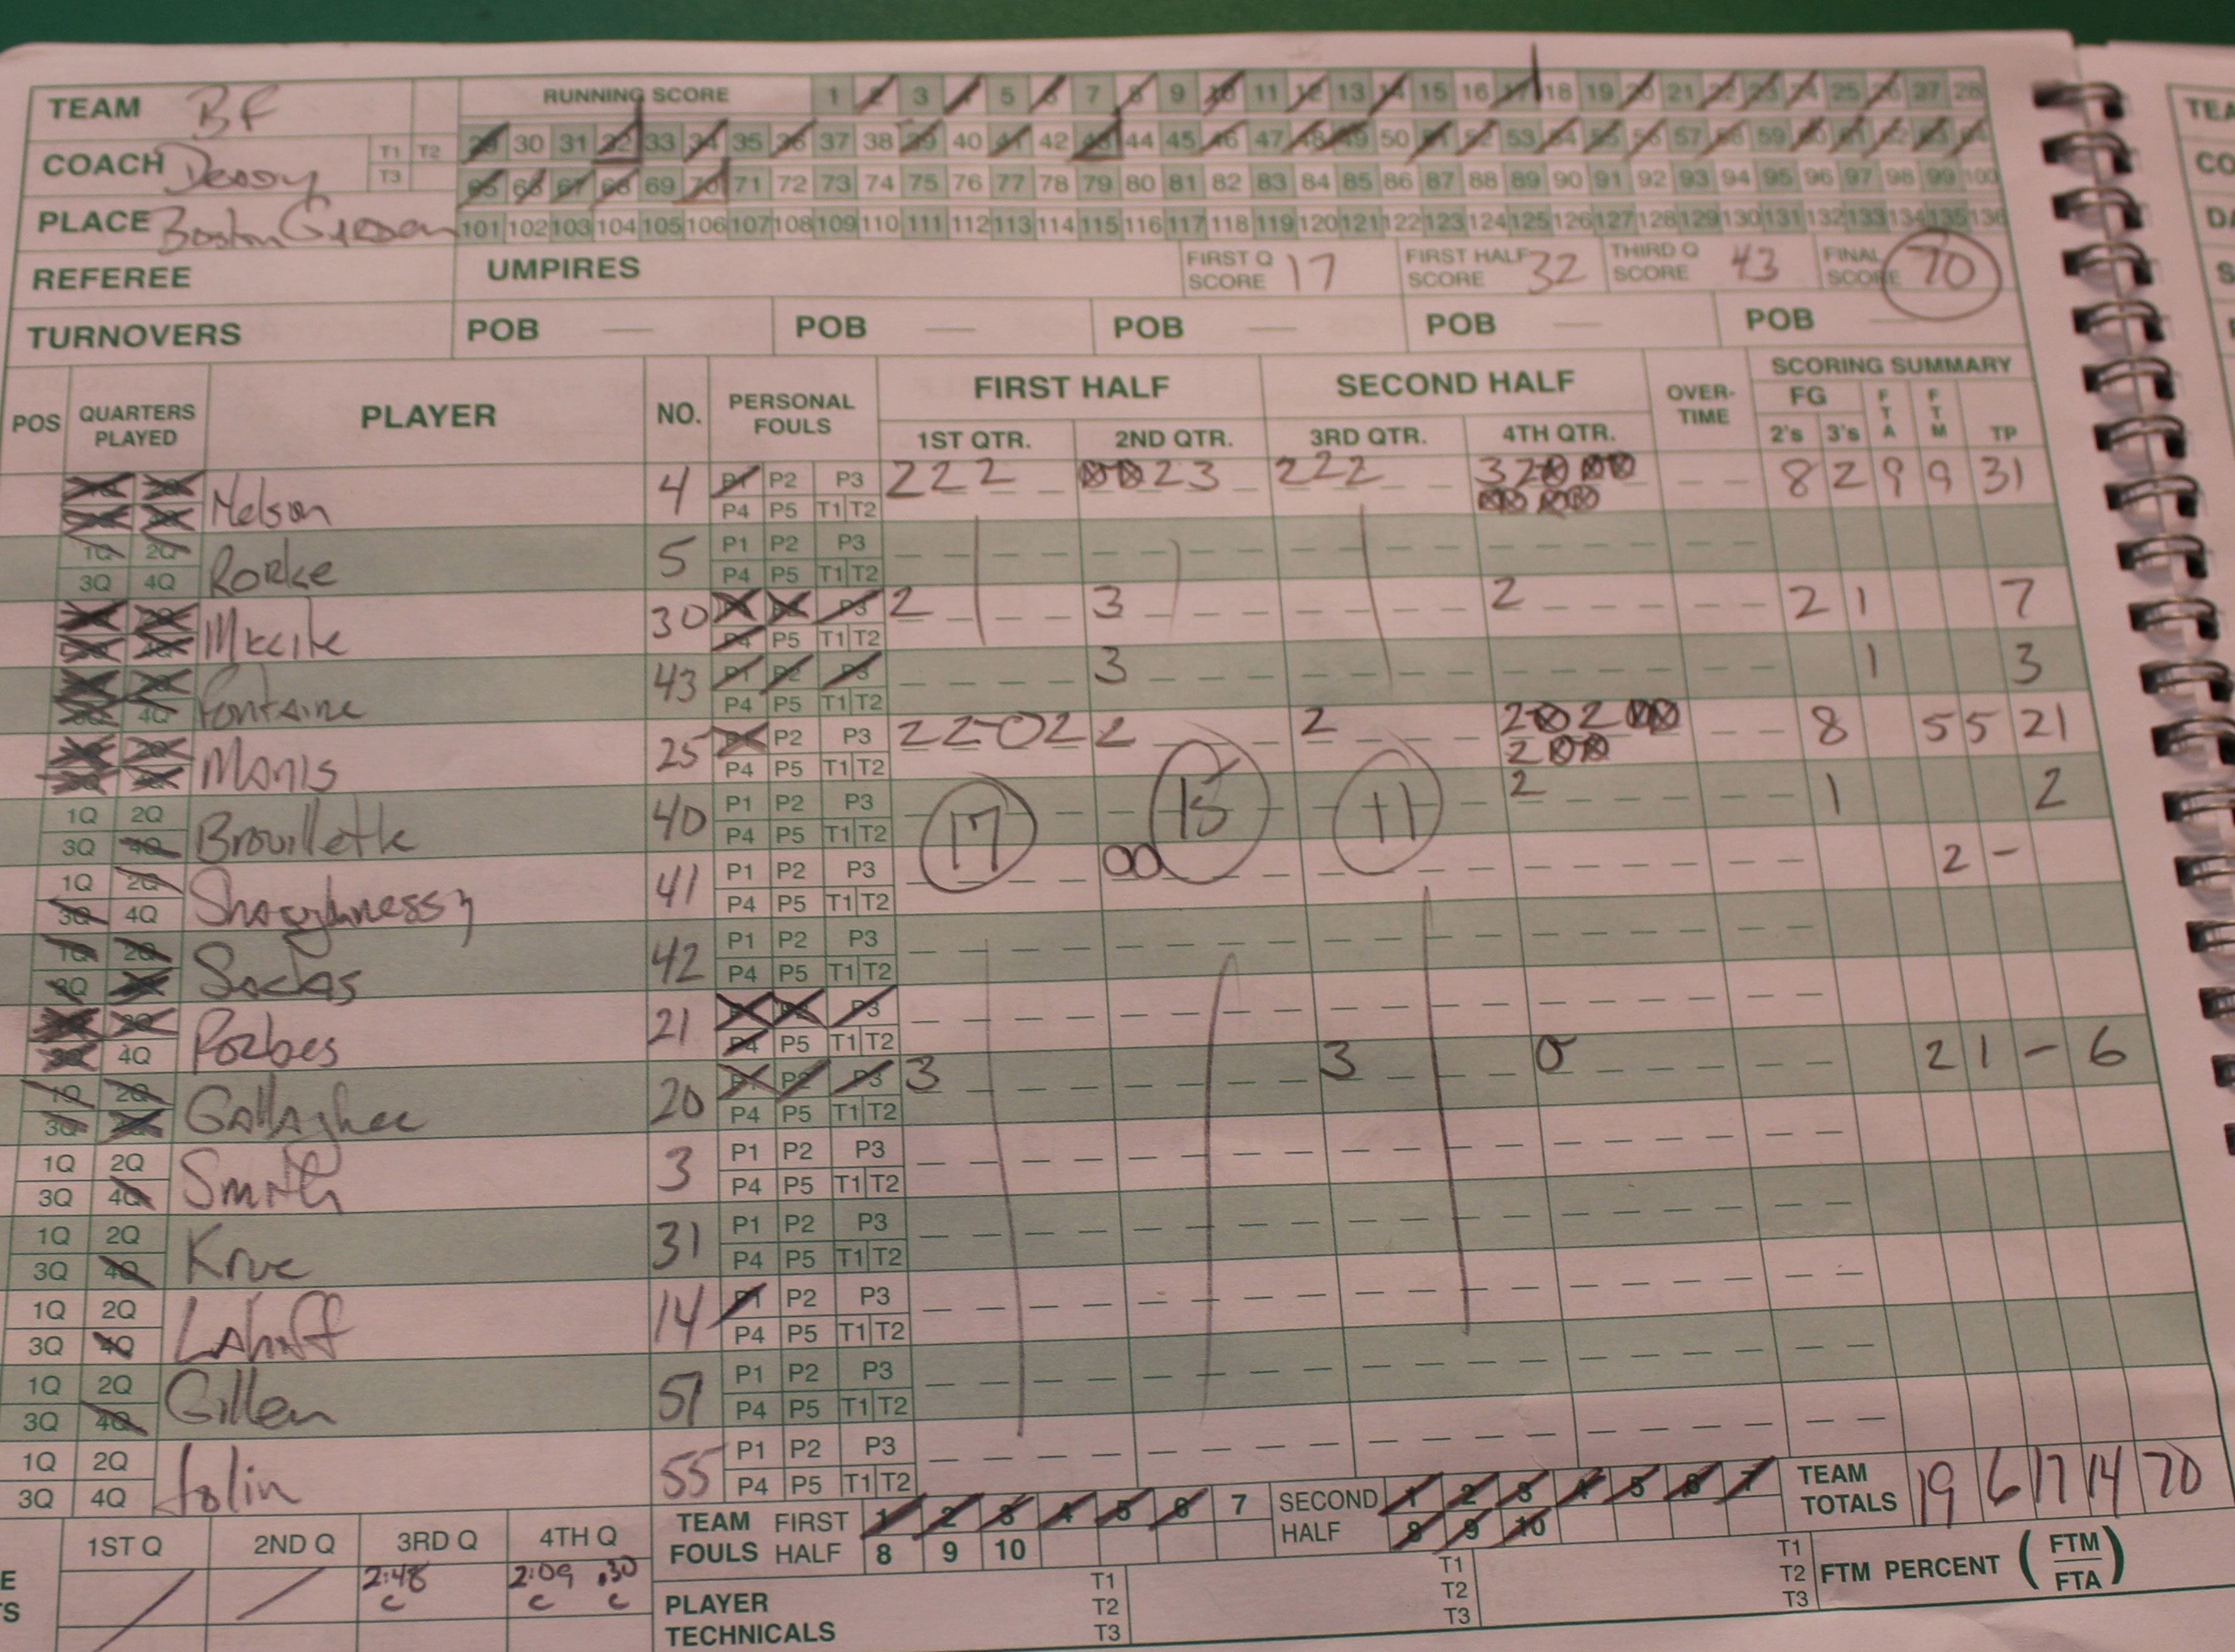 TEAM BF RUNNING SCORE 1 2 3 4 5 6 7 8 9 10 11 12 13 14 15 16 17 18 19 20 21 22 23 24 25 26 27 28
COACH T1 T2 29 30 31 32 33 34 35 36 37 38 39 40 41 42 43 44 45 46 47 48 49 50 51 52 53 54 55 56 57 58 59 60 61 62 63 64
T3 65 66 67 68 69 70 71 72 73 74 75 76 77 78 79 80 81 82 83 84 85 86 87 88 89 90 91 92 93 94 95 96 97 98 99 100
PLACE Boston Garden 101 102 103 104 105 106 107 108 109 110 111 112 113 114 115 116 117 118 119 120 121 122 123 124 125 126 127 128 129 130 131 132 133 134 135 136
REFEREE UMPIRES FIRST Q SCORE 17 FIRST HALF SCORE 32 THIRD Q SCORE 43 FINAL SCORE 70
TURNOVERS POB — POB — POB — POB — POB —
POS QUARTERS PLAYED PLAYER NO. PERSONAL FOULS FIRST HALF SECOND HALF OVER-TIME SCORING SUMMARY
1ST QTR. 2ND QTR. 3RD QTR. 4TH QTR. FG 2's 3's FTA FTM TP
Nelson 4 P1 P2 P3 222 23 222 32 8 2 9 9 31
P4 P5 T1 T2
1Q 2Q Rorke 5 P1 P2 P3
3Q 4Q P4 P5 T1 T2
30 P3 2 3 2 2 1 7
P4 P5 T1 T2
Fontaine 43 P1 P2 P3 3 1 3
4Q P4 P5 T1 T2
25 P2 P3 22-022 2 2 8 5 5 21
P4 P5 T1 T2 2
1Q 2Q Brouillette 40 P1 P2 P3 17 15 11 2 1 2
3Q 4Q P4 P5 T1 T2
1Q 2Q Shaughnessy 41 P1 P2 P3 00 2 -
3Q 4Q P4 P5 T1 T2
1Q 2Q 42 P1 P2 P3
3Q P4 P5 T1 T2
Forbes 21 P3
4Q P4 P5 T1 T2
1Q 2Q Gallagher 20 P1 P2 P3 3 3 0 2 1 - 6
3Q P4 P5 T1 T2
1Q 2Q Smith 3 P1 P2 P3
3Q 4Q P4 P5 T1 T2
1Q 2Q 31 P1 P2 P3
3Q 4Q P4 P5 T1 T2
1Q 2Q Lahiff 14 P1 P2 P3
3Q 4Q P4 P5 T1 T2
1Q 2Q Gillen 51 P1 P2 P3
3Q 4Q P4 P5 T1 T2
1Q 2Q 55 P1 P2 P3
3Q 4Q P4 P5 T1 T2
TEAM FOULS FIRST HALF 1 2 3 4 5 6 7 8 9 10 SECOND HALF 1 2 3 4 5 6 7 8 9 10 TEAM TOTALS 19 6 17 14 70
1ST Q 2ND Q 3RD Q 4TH Q
2:48 2:09 .30
C C C
PLAYER TECHNICALS T1 T2 T3 T1 T2 T3 T1 T2 T3 FTM PERCENT (FTM/FTA)